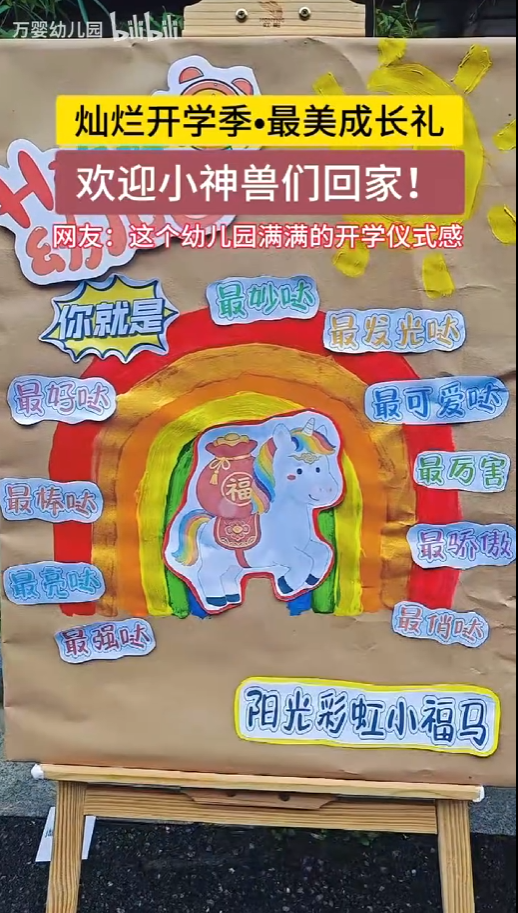 万婴幼儿园 bilibili
灿烂开学季•最美成长礼
欢迎小神兽们回家！
网友：这个幼儿园满满的开学仪式感
你就是
最妙哒
最发光哒
最好哒
最可爱哒
最厉害
最棒哒
最骄傲
最亮哒
最俏哒
最强哒
福
阳光彩虹小福马